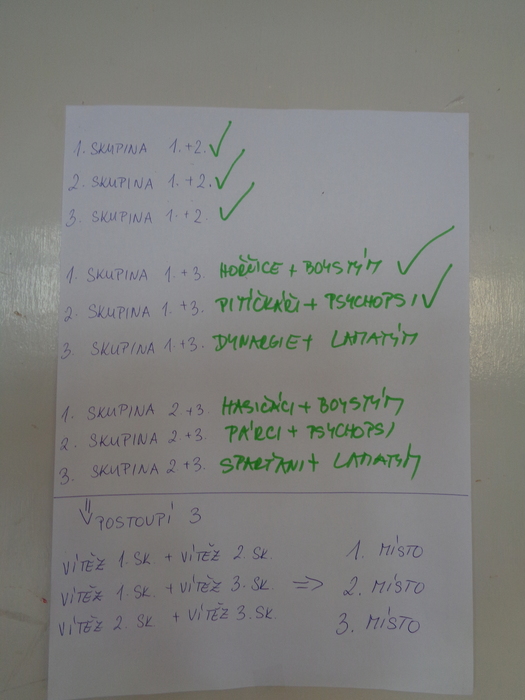 1. SKUPINA 1.+2. ✓
2. SKUPINA 1.+2. ✓
3. SKUPINA 1.+2. ✓
1. SKUPINA 1.+3. HOŘČICE + BOYSTÝM ✓
2. SKUPINA 1.+3. PITÍČKÁŘI + PSYCHOPSI ✓
3. SKUPINA 1.+3. DYNARGIE + LAMATÝM
1. SKUPINA 2+3. HASIČÁCI + BOYSTÝM
2. SKUPINA 2.+3. PÁRCI + PSYCHOPSI
3. SKUPINA 2+3. SPARŤANI + LAMATÝM
⇓ POSTOUPÍ 3
VÍTĚZ 1. SK. + VÍTĚZ 2. SK. 1. MÍSTO
VÍTĚZ 1. SK. + VÍTĚZ 3. SK. => 2. MÍSTO
VÍTĚZ 2. SK. + VÍTĚZ 3. SK. 3. MÍSTO